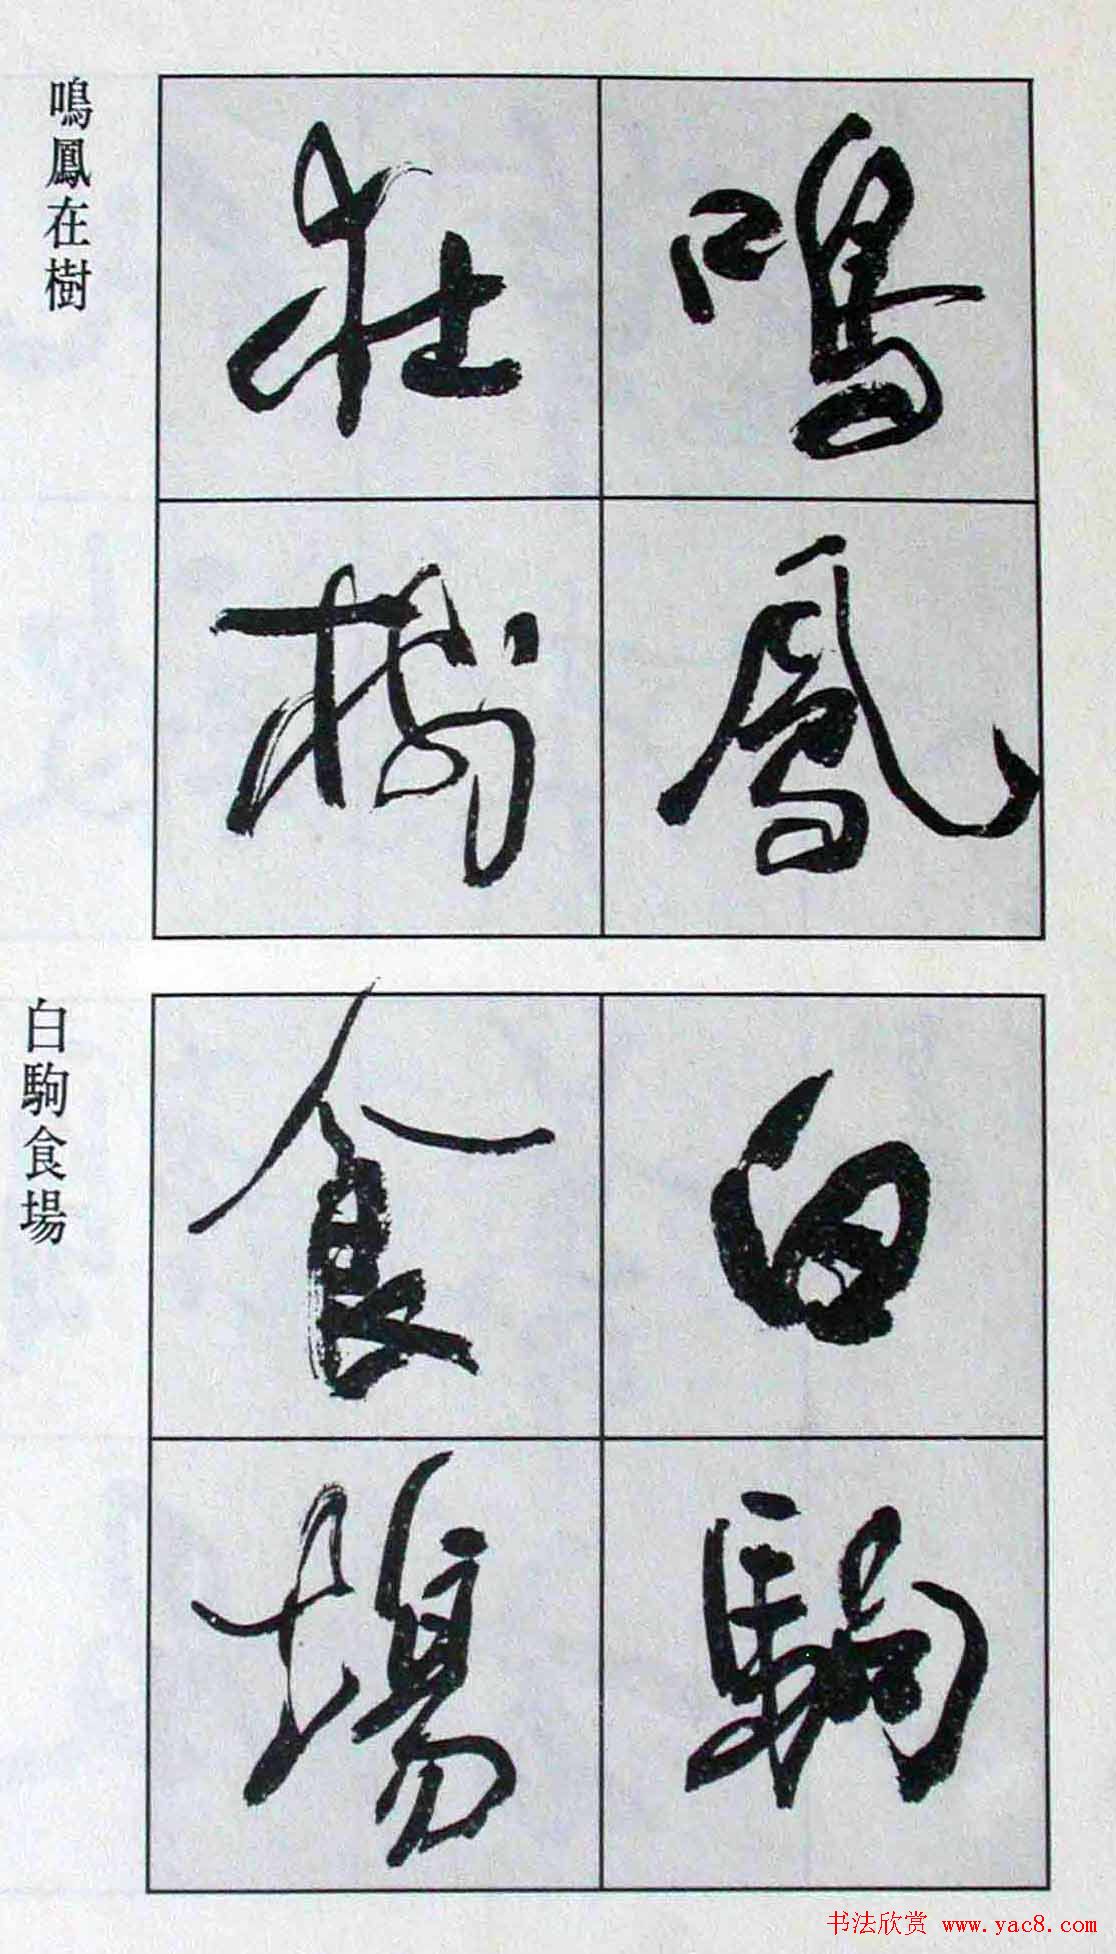 鳴鳳
在樹
鳴鳳在樹
白駒
食場
白駒食場
书法欣赏 www.yac8.com